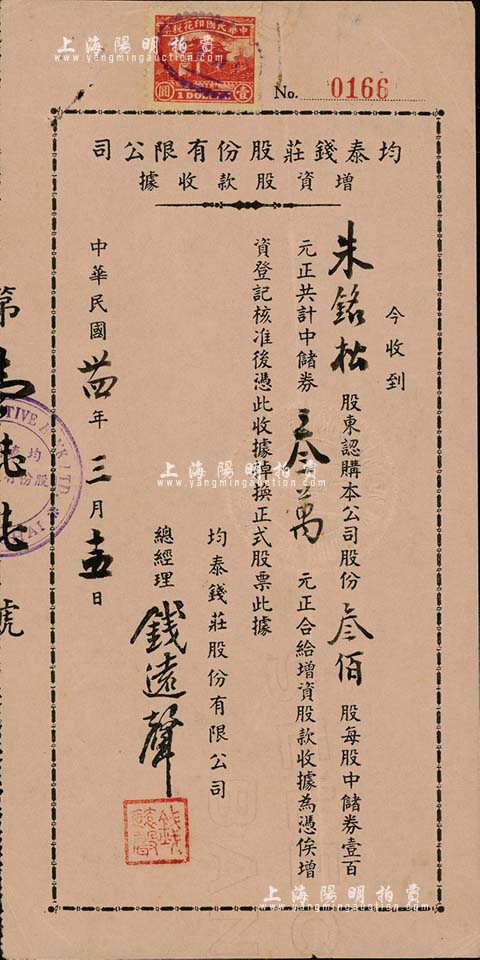 中華民國印花稅票
壹
圓
1 DOLLAR
No. 0166
均泰錢莊股份有限公司
增資股款收據
今收到
朱銘松股東認購本公司股份叁佰股每股中儲券壹百
元正共計中儲券叁萬元正合給增資股款收據為憑俟增
資登記核准後憑此收據掉換正式股票此據
均泰錢莊股份有限公司
總經理錢遠聲
中華民國卅四年三月十五日
第
號
上海陽明拍賣
www.yangmingauction.com
上海陽明拍賣
www.yangmingauction.com
上海陽明拍賣
www.yangmingauction.com